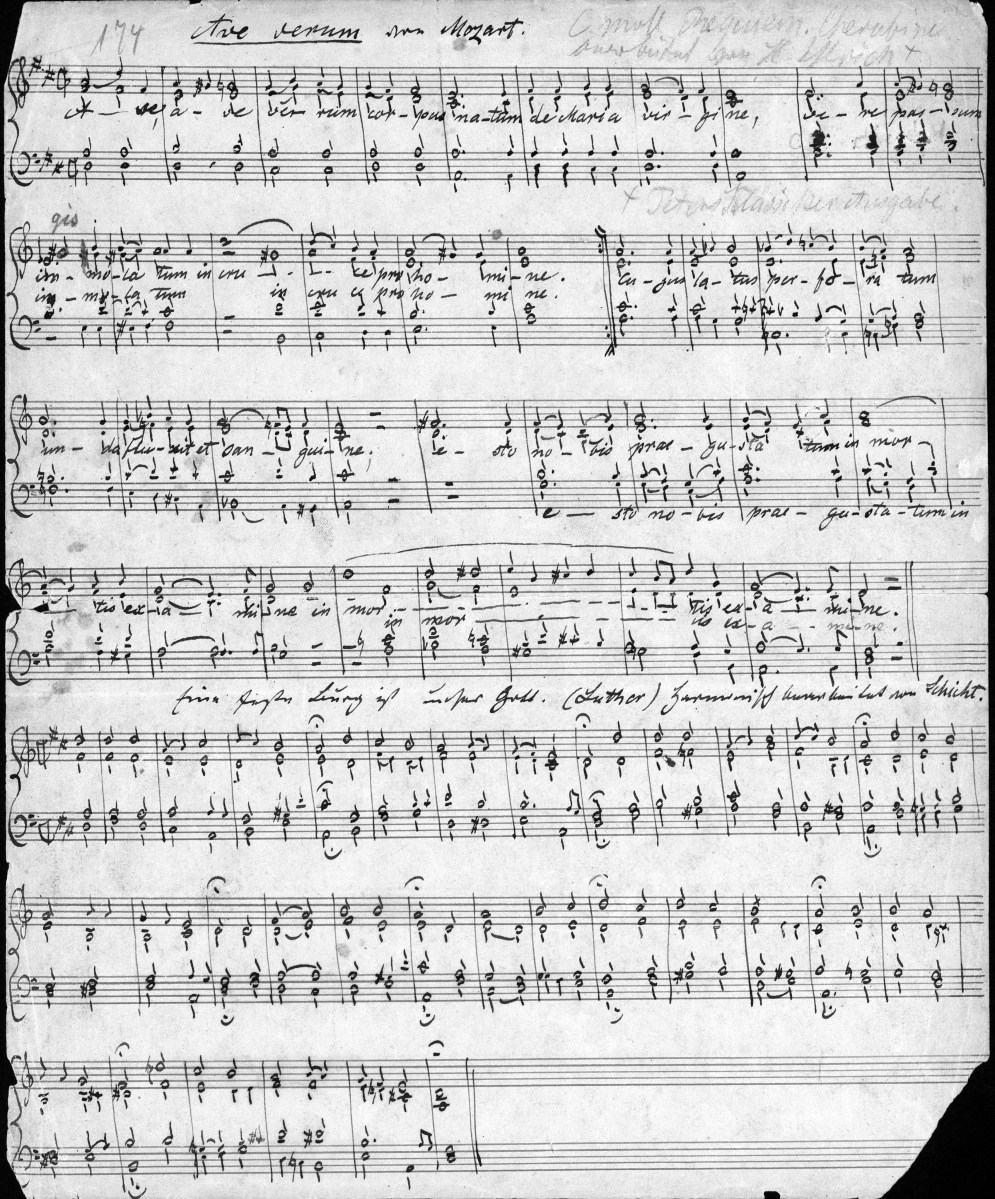 174 Ave verum von Mozart. C moll Requiem. Cherubini
bearbeitet von H. Ullrich +
A - ve, a - ve ver - rum cor - pus na - tum de Maria vir - gine, ve - re pas - sum
+ Peters Klassiker Ausgabe.
gis
im - mo - la tum in cru - ce pro ho - mi - ne. cu - jus la - tus per - fo - ra tum
im - mo - la tum in cru ce pro ho - mi ne.
un - da flu - xit et san - gui - ne, e - sto no - bis prae - gu - sta tum in mor -
e - sto no - bis prae - gu - sta - tum in
tis ex - a - mi - ne in mor - tis ex - a - mi - ne.
in mor - tis ex - a - mi - ne.
Eine feste Burg ist unser Gott. (Luther) Harmonisch bearbeitet von Schicht.